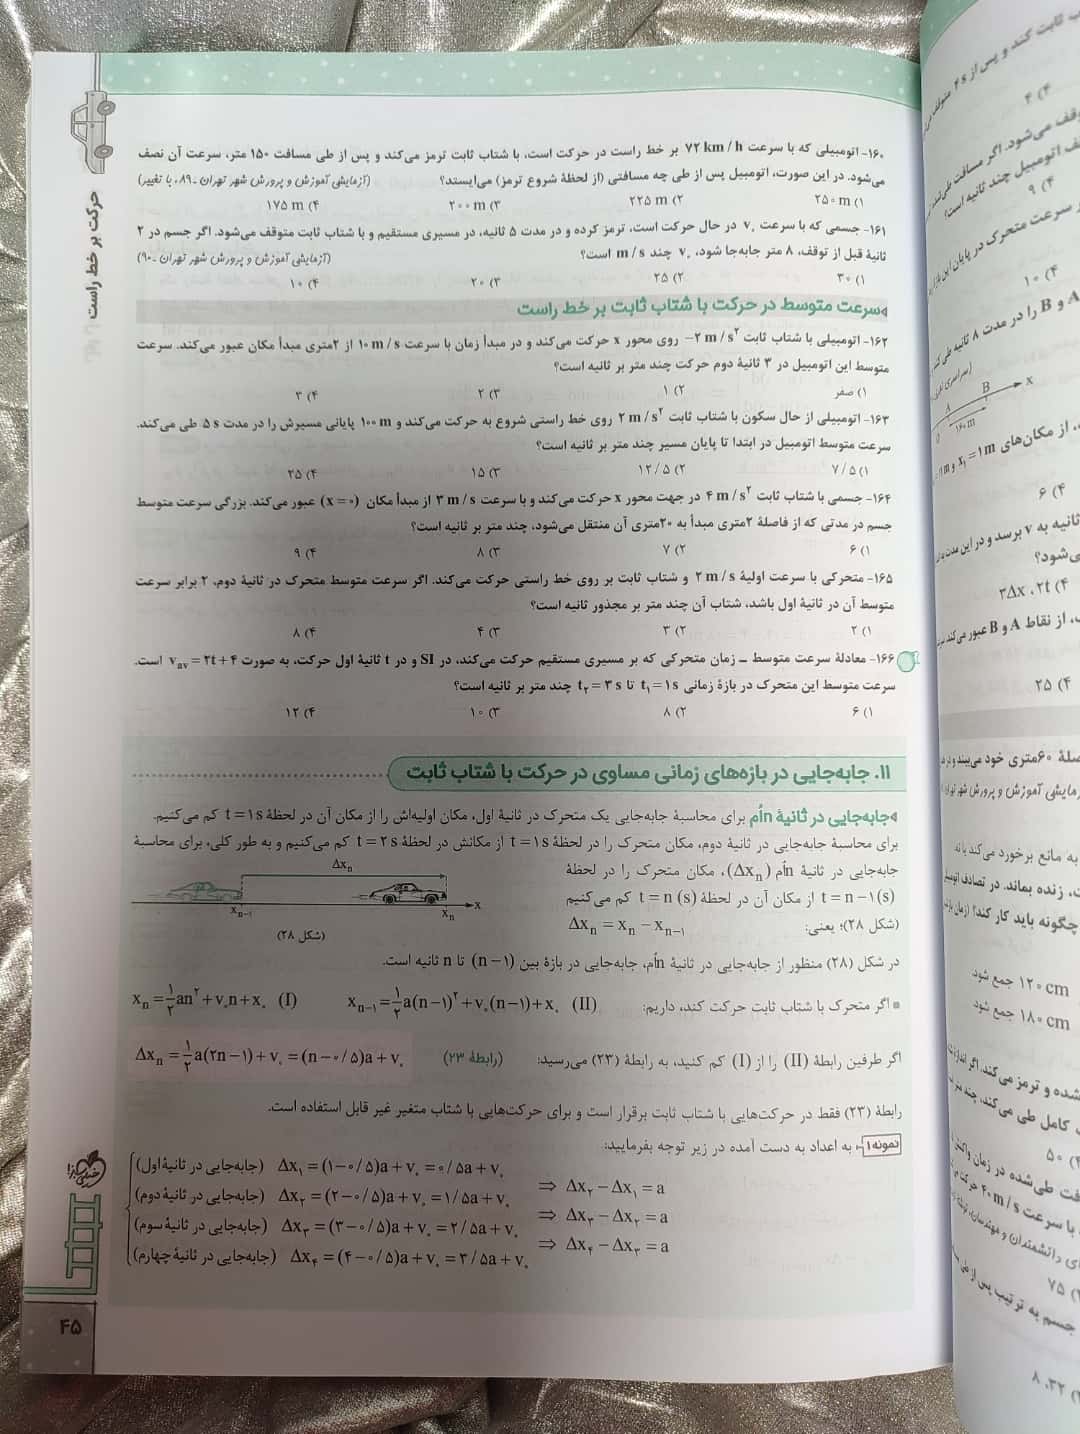 ۱۶۰- اتومبیلی که با سرعت ۷۲ km / h بر خط راست در حرکت است، با شتاب ثابت ترمز می‌کند و پس از طی مسافت ۱۵۰ متر، سرعت آن نصف
می‌شود. در این صورت، اتومبیل پس از طی چه مسافتی (از لحظهٔ شروع ترمز) می‌ایستد؟ (آزمایشی آموزش و پرورش شهر تهران ـ ۸۹، با تغییر)
۱) ۲۵۰ m ۲) ۲۲۵ m ۳) ۲۰۰ m ۴) ۱۷۵ m
۱۶۱- جسمی که با سرعت v₀ در حال حرکت است، ترمز کرده و در مدت ۵ ثانیه، در مسیری مستقیم و با شتاب ثابت متوقف می‌شود. اگر جسم در ۲
ثانیهٔ قبل از توقف، ۸ متر جابه‌جا شود، v₀ چند m / s است؟ (آزمایشی آموزش و پرورش شهر تهران ـ ۹۰)
۱) ۳۰ ۲) ۲۵ ۳) ۲۰ ۴) ۱۰
سرعت متوسط در حرکت با شتاب ثابت بر خط راست
۱۶۲- اتومبیلی با شتاب ثابت ‎−۲ m / s²‎ روی محور x حرکت می‌کند و در مبدأ زمان با سرعت ۱۰ m / s از ۲متری مبدأ مکان عبور می‌کند. سرعت
متوسط این اتومبیل در ۳ ثانیهٔ دوم حرکت چند متر بر ثانیه است؟
۱) صفر ۲) ۱ ۳) ۲ ۴) ۳
۱۶۳- اتومبیلی از حال سکون با شتاب ثابت ۲ m / s² روی خط راستی شروع به حرکت می‌کند و ۱۰۰ m پایانی مسیرش را در مدت ۵ s طی می‌کند.
سرعت متوسط اتومبیل در ابتدا تا پایان مسیر چند متر بر ثانیه است؟
۱) ۷/۵ ۲) ۱۲/۵ ۳) ۱۵ ۴) ۲۵
۱۶۴- جسمی با شتاب ثابت ۴ m / s² در جهت محور x حرکت می‌کند و با سرعت ۳ m / s از مبدأ مکان (x = ۰) عبور می‌کند. بزرگی سرعت متوسط
جسم در مدتی که از فاصلهٔ ۲متری مبدأ به ۲۰متری آن منتقل می‌شود، چند متر بر ثانیه است؟
۱) ۶ ۲) ۷ ۳) ۸ ۴) ۹
۱۶۵- متحرکی با سرعت اولیهٔ ۲ m / s و شتاب ثابت بر روی خط راستی حرکت می‌کند. اگر سرعت متوسط متحرک در ثانیهٔ دوم، ۲ برابر سرعت
متوسط آن در ثانیهٔ اول باشد، شتاب آن چند متر بر مجذور ثانیه است؟
۱) ۲ ۲) ۳ ۳) ۴ ۴) ۸
۱۶۶- معادلهٔ سرعت متوسط ـ زمان متحرکی که بر مسیری مستقیم حرکت می‌کند، در SI و در t ثانیهٔ اول حرکت، به صورت vₐᵥ = ۲t + ۴ است.
سرعت متوسط این متحرک در بازهٔ زمانی t₁ = ۱s تا t₂ = ۳s چند متر بر ثانیه است؟
۱) ۶ ۲) ۸ ۳) ۱۰ ۴) ۱۲
۱۱. جابه‌جایی در بازه‌های زمانی مساوی در حرکت با شتاب ثابت
جابه‌جایی در ثانیهٔ nاُم برای محاسبهٔ جابه‌جایی یک متحرک در ثانیهٔ اول، مکان اولیه‌اش را از مکان آن در لحظهٔ t = ۱s کم می‌کنیم.
برای محاسبهٔ جابه‌جایی در ثانیهٔ دوم، مکان متحرک را در لحظهٔ t = ۱s از مکانش در لحظهٔ t = ۲s کم می‌کنیم و به طور کلی، برای محاسبهٔ
جابه‌جایی در ثانیهٔ nاُم (Δxₙ)، مکان متحرک را در لحظهٔ
t = n − ۱(s) از مکان آن در لحظهٔ t = n (s) کم می‌کنیم
(شکل ۲۸)؛ یعنی: Δxₙ = xₙ − xₙ₋₁
Δxₙ
xₙ₋₁ xₙ x
(شکل ۲۸)
در شکل (۲۸) منظور از جابه‌جایی در ثانیهٔ nاُم، جابه‌جایی در بازهٔ بین (n − ۱) تا n ثانیه است.
اگر متحرک با شتاب ثابت حرکت کند، داریم: xₙ₋₁ = ½a(n−۱)² + v₀(n−۱) + x₀ (II) xₙ = ½an² + v₀n + x₀ (I)
اگر طرفین رابطهٔ (II) را از (I) کم کنید، به رابطهٔ (۲۳) می‌رسید: (رابطهٔ ۲۳) Δxₙ = ½a(۲n−۱) + v₀ = (n−۰/۵)a + v₀
رابطهٔ (۲۳) فقط در حرکت‌هایی با شتاب ثابت برقرار است و برای حرکت‌هایی با شتاب متغیر غیر قابل استفاده است.
نمونه۱ به اعداد به دست آمده در زیر توجه بفرمایید:
(جابه‌جایی در ثانیهٔ اول) Δx₁ = (۱−۰/۵)a + v₀ = ۰/۵a + v₀ ⇒ Δx₂ − Δx₁ = a
(جابه‌جایی در ثانیهٔ دوم) Δx₂ = (۲−۰/۵)a + v₀ = ۱/۵a + v₀ ⇒ Δx₃ − Δx₂ = a
(جابه‌جایی در ثانیهٔ سوم) Δx₃ = (۳−۰/۵)a + v₀ = ۲/۵a + v₀ ⇒ Δx₄ − Δx₃ = a
(جابه‌جایی در ثانیهٔ چهارم) Δx₄ = (۴−۰/۵)a + v₀ = ۳/۵a + v₀
حرکت بر خط راست
خیلی سبز
۴۵